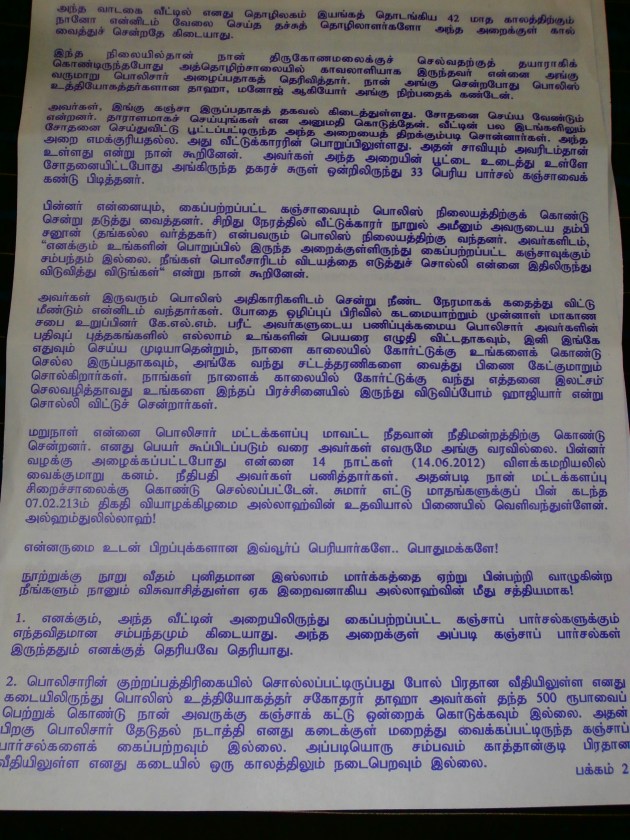 அந்த வாடகை வீட்டில் எனது தொழிலகம் இயங்கத் தொடங்கிய 42 மாத காலத்திற்கும்
நானோ என்னிடம் வேலை செய்த தச்சுத் தொழிலாளர்களோ அந்த அறைக்குள் கால்
வைத்துச் சென்றதே கிடையாது.
இந்த நிலையில்தான் நான் திருகோணமலைக்குச் செல்வதற்குத் தயாராகிக்
கொண்டிருந்தபோது அத்தொழிற்சாலையில் காவலாளியாக இருந்தவர் என்னை அங்கு
வருமாறு பொலிசார் அழைப்பதாகத் தெரிவித்தார். நான் அங்கு சென்றபோது பொலிஸ்
உத்தியோகத்தர்களான தாஹா, மனோஜ் ஆகியோர் அங்கு நிற்பதைக் கண்டேன்.
அவர்கள், இங்கு கஞ்சா இருப்பதாகத் தகவல் கிடைத்துள்ளது. சோதனை செய்ய வேண்டும்
என்றனர். தாராளமாகச் செய்யுங்கள் என அனுமதி கொடுத்தேன். வீட்டின் பல இடங்களிலும்
சோதனை செய்துவிட்டு பூட்டப்பட்டிருந்த அந்த அறையைத் திறக்கும்படி சொன்னார்கள். அந்த
அறை எமக்குரியதல்ல. அது வீட்டுக்காரரின் பொறுப்பிலுள்ளது. அதன் சாவியும் அவரிடம்தான்
உள்ளது என்று நான் கூறினேன். அவர்கள் அந்த அறையின் பூட்டை உடைத்து உள்ளே
சோதனையிட்டபோது அங்கிருந்த தகரச் சுருள் ஒன்றிலிருந்து 33 பெரிய பார்சல் கஞ்சாவைக்
கண்டு பிடித்தனர்.
பின்னர் என்னையும், கைப்பற்றப்பட்ட கஞ்சாவையும் பொலிஸ் நிலையத்திற்குக் கொண்டு
சென்று தடுத்து வைத்தனர். சிறிது நேரத்தில் வீட்டுக்காரர் நூறுல் அமீனும் அவருடைய தம்பி
சனூன் (தங்கல்ல வர்த்தகர்) என்பவரும் பொலிஸ் நிலையத்திற்கு வந்தனர். அவர்களிடம்,
“எனக்கும் உங்களின் பொறுப்பில் இருந்த அறைக்குள்ளிருந்து கைப்பற்றப்பட்ட கஞ்சாவுக்கும்
சம்பந்தம் இல்லை. நீங்கள் பொலீசாரிடம் விடயத்தை எடுத்துச் சொல்லி என்னை இதிலிருந்து
விடுவித்து விடுங்கள்“ என்று நான் கூறினேன்.
அவர்கள் இருவரும் பொலிஸ் அதிகாரிகளிடம் சென்று நீண்ட நேரமாகக் கதைத்து விட்டு
மீண்டும் என்னிடம் வந்தார்கள். போதை ஒழிப்புப் பிரிவில் கடமையாற்றும் முன்னாள் மாகாண
சபை உறுப்பினர் கே.எல்.எம். பரீட் அவர்களுடைய பணிப்புக்கமைய பொலிசார் அவர்களின்
பதிவுப் புத்தகங்களில் எல்லாம் உங்களின் பெயரை எழுதி விட்டதாகவும், இனி இங்கே
எதுவும் செய்ய முடியாதென்றும், நாளை காலையில் கோர்ட்டுக்கு உங்களைக் கொண்டு
செல்ல இருப்பதாகவும், அங்கே வந்து சட்டத்தரணிகளை வைத்து பிணை கேட்குமாறும்
சொல்கிறார்கள். நாங்கள் நாளைக் காலையில் கோர்ட்டுக்கு வந்து எத்தனை இலட்சம்
செலவழித்தாவது உங்களை இந்தப் பிரச்சினையில் இருந்து விடுவிப்போம் ஹாஜியார் என்று
சொல்லி விட்டுச் சென்றார்கள்.
மறுநாள் என்னை பொலிசார் மட்டக்களப்பு மாவட்ட நீதவான் நீதிமன்றத்திற்கு கொண்டு
சென்றனர். எனது பெயர் கூப்பிடப்படும் வரை அவர்கள் எவருமே அங்கு வரவில்லை. பின்னர்
வழக்கு அழைக்கப்பட்டபோது என்னை 14 நாட்கள் (14.06.2012) விளக்கமறியலில்
வைக்குமாறு கனம். நீதிபதி அவர்கள் பணித்தார்கள். அதன்படி நான் மட்டக்களப்பு
சிறைச்சாலைக்கு கொண்டு செல்லப்பட்டேன். சுமார் எட்டு மாதங்களுக்குப் பின் கடந்த
07.02.213ம் திகதி வியாழக்கிழமை அல்லாஹ்வின் உதவியால் பிணையில் வெளிவந்துள்ளேன்.
அல்ஹம்துலில்லாஹ்!
என்னருமை உடன் பிறப்புக்களான இவ்வூர்ப் பெரியார்களே.. பொதுமக்களே!
நூற்றுக்கு நூறு வீதம் புனிதமான இஸ்லாம் மார்க்கத்தை ஏற்று பின்பற்றி வாழுகின்ற
நீங்களும் நானும் விசுவாசித்துள்ள ஏக இறைவனாகிய அல்லாஹ்வின் மீது சத்தியமாக!
1. எனக்கும், அந்த வீட்டின் அறையிலிருந்து கைப்பற்றப்பட்ட கஞ்சாப் பார்சல்களுக்கும்
எந்தவிதமான சம்பந்தமும் கிடையாது. அந்த அறைக்குள் அப்படி கஞ்சாப் பார்சல்கள்
இருந்ததும் எனக்குத் தெரியவே தெரியாது.
2. பொலிசாரின் குற்றப்பத்திரிகையில் சொல்லப்பட்டிருப்பது போல் பிரதான வீதியிலுள்ள எனது
கடையிலிருந்து பொலிஸ் உத்தியோகத்தர் சகோதரர் தாஹா அவர்கள் தந்த 500 ரூபாவைப்
பெற்றுக் கொண்டு நான் அவருக்கு கஞ்சாக் கட்டு ஒன்றைக் கொடுக்கவும் இல்லை. அதன்
பிறகு பொலிசார் தேடுதல் நடாத்தி எனது கடைக்குள் மறைத்து வைக்கப்பட்டிருந்த கஞ்சாப்
பார்சல்களைக் கைப்பற்றவும் இல்லை. அப்படியொரு சம்பவம் காத்தான்குடி பிரதான
வீதியிலுள்ள எனது கடையில் ஒரு காலத்திலும் நடைபெறவும் இல்லை.
பக்கம் 2